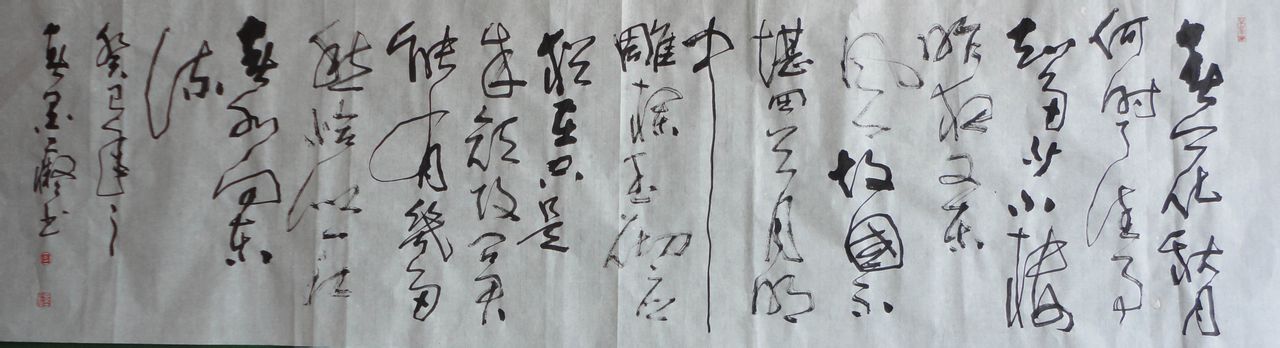 春花秋月
何时了往事
知多少小楼
昨夜又东
风故國不
堪回首月明
中
雕栏玉砌应
犹在只是
朱颜改问君
能有幾多
愁恰似一江
春水向东
流
癸巳年之
春墨癡书